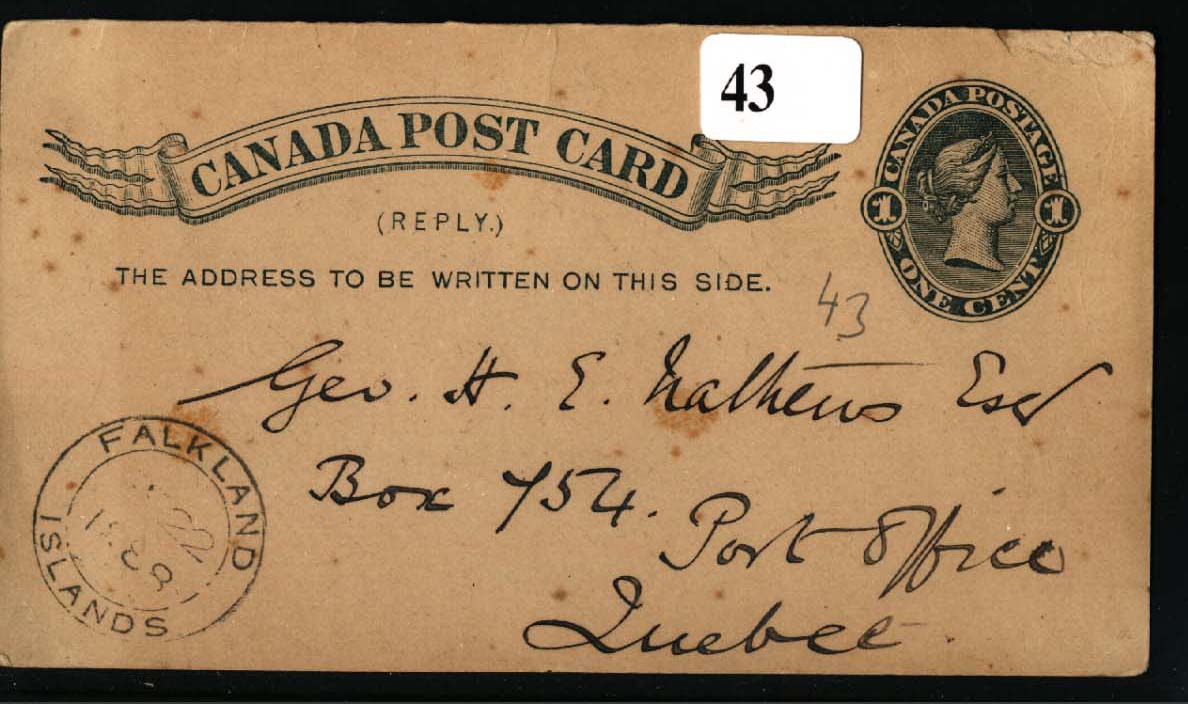 43
CANADA POST CARD
(REPLY.)
THE ADDRESS TO BE WRITTEN ON THIS SIDE.
CANADA POSTAGE
1 1
ONE CENT
43
Geo. H. E. Mathews Esq
Box 754.
Post Office
Quebec.
FALKLAND
ISLANDS